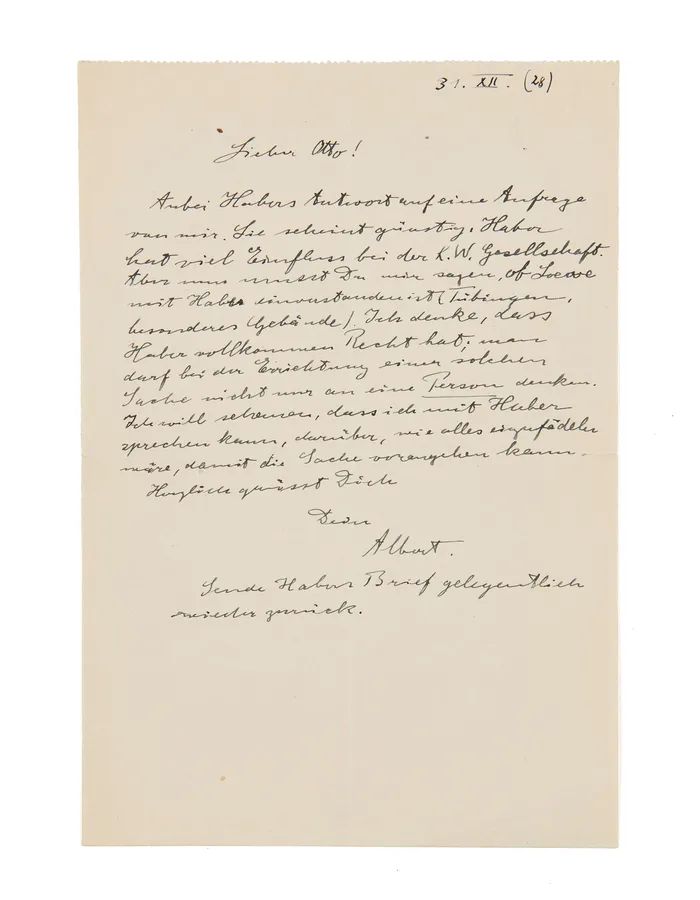 31. XII. (28)
Lieber Otto!
Anbei Habers Antwort auf eine Anfrage
von mir. Sie scheint günstig. Haber
hat viel Einfluss bei der K.W. Gesellschaft.
Aber nun musst Du mir sagen, ob Loewe
mit Haber einverstanden ist (Tübingen,
besonderes Gebäude). Ich denke, dass
Haber vollkommen Recht hat; man
darf bei der Errichtung einer solchen
Sache nicht nur an eine Person denken.
Ich will sehen, dass ich mit Haber
sprechen kann, darüber, wie alles einzufädeln
wäre, damit die Sache vorangehen kann.
Herzlich grüsst Dich
Dein
Albert.
Sende Habers Brief gelegentlich
wieder zurück.